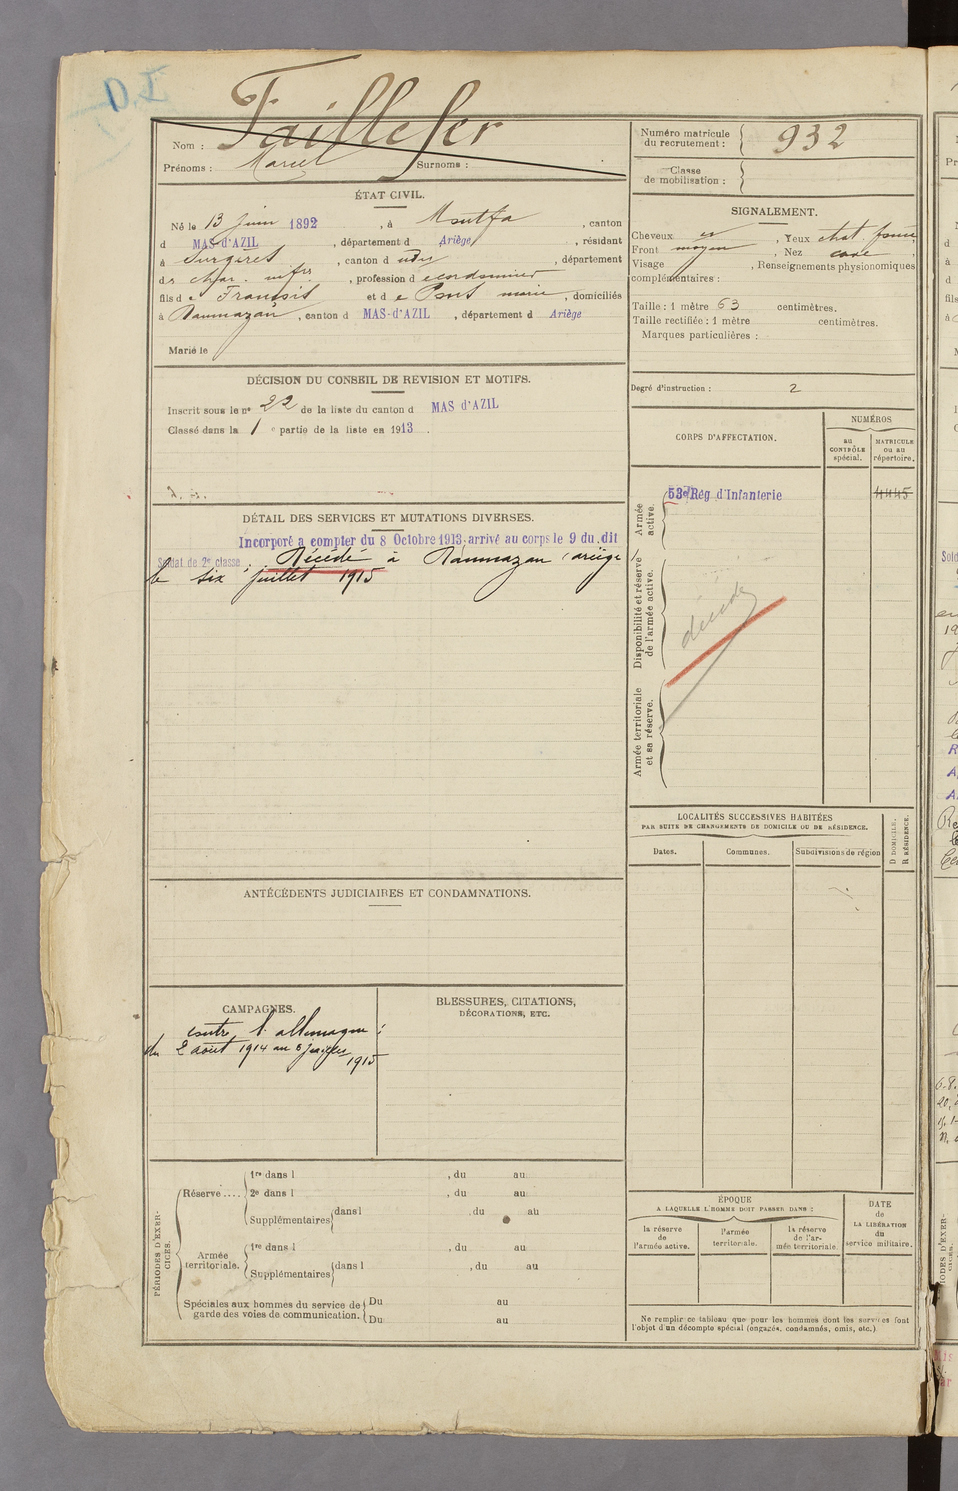 Nom : Taillefer
Prénoms : Marcel Surnoms :
Numéro matricule du recrutement : 932
Classe de mobilisation :
ÉTAT CIVIL.
Né le 13 juin 1892, à Montfa, canton
d MAS-d'AZIL, département d Ariège, résidant
à Surgères, canton d , département
de char. infre, profession d cordonnier
fils de François et de Pont marie, domiciliés
à Daumazan, canton d MAS-d'AZIL, département d Ariège
Marié le
SIGNALEMENT.
Cheveux , Yeux chat. foncé
Front moyen, Nez cave,
Visage , Renseignements physionomiques
complémentaires :
Taille : 1 mètre 63 centimètres.
Taille rectifiée : 1 mètre centimètres.
Marques particulières :
Degré d'instruction : 2
DÉCISION DU CONSEIL DE REVISION ET MOTIFS.
Inscrit sous le nº 22 de la liste du canton d MAS d'AZIL
Classé dans la 1 e partie de la liste en 1913.
CORPS D'AFFECTATION.
NUMÉROS
au CONTRÔLE spécial.
MATRICULE ou au répertoire.
Armée active.
Rég d'Infanterie
4445
Disponibilité et réserve de l'armée active.
décédé
Armée territoriale et sa réserve.
DÉTAIL DES SERVICES ET MUTATIONS DIVERSES.
Incorporé a compter du 8 Octobre 1913; arrivé au corps le 9 du dit
Soldat de 2e classe. Décédé à Daumazan (ariège)
le six juillet 1915
LOCALITÉS SUCCESSIVES HABITÉES
PAR SUITE DE CHANGEMENTS DE DOMICILE OU DE RÉSIDENCE.
Dates. Communes. Subdivisions de région
D DOMICILE.
R RÉSIDENCE.
ANTÉCÉDENTS JUDICIAIRES ET CONDAMNATIONS.
CAMPAGNES.
contre l'allemagne :
du 2 août 1914 au 6 juillet
1915
BLESSURES, CITATIONS,
DÉCORATIONS, ETC.
PÉRIODES D'EXERCICES.
Réserve....
1re dans l , du au
2e dans l , du au
Supplémentaires dans l , du au
Armée territoriale.
1re dans l , du au
Supplémentaires dans l , du au
Spéciales aux hommes du service de garde des voies de communication.
Du au
Du au
ÉPOQUE
A LAQUELLE L'HOMME DOIT PASSER DANS :
la réserve de l'armée active.
l'armée territoriale.
la réserve de l'armée territoriale.
DATE de LA LIBÉRATION du service militaire.
Ne remplir ce tableau que pour les hommes dont les services font
l'objet d'un décompte spécial (engagés, condamnés, omis, etc.)